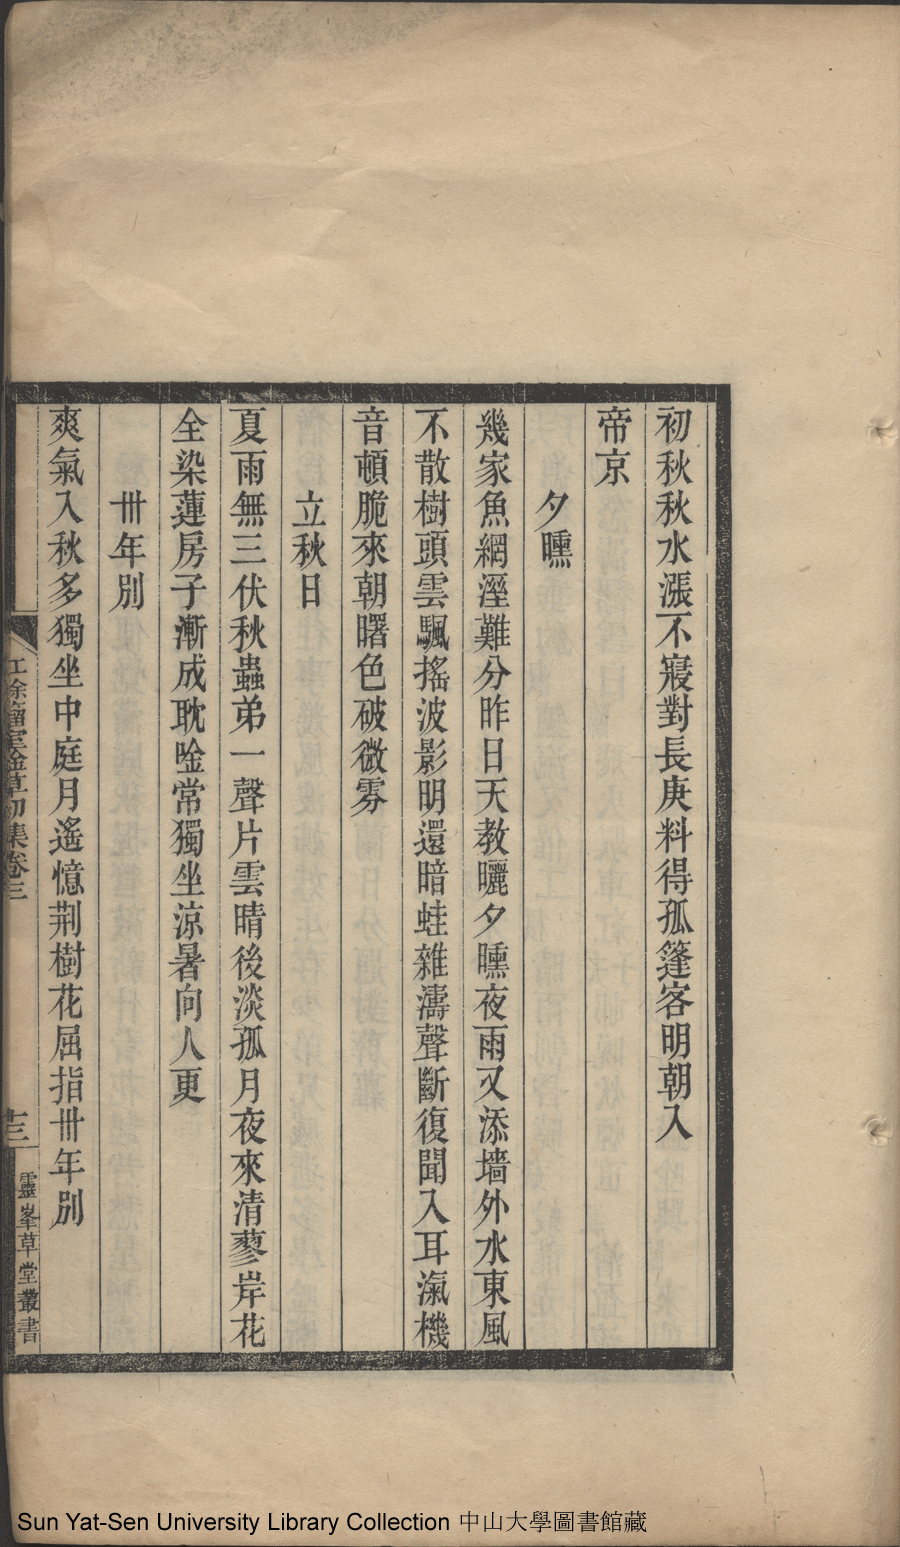 初秋秋水漲不寢對長庚料得孤篷客明朝入
帝京
夕曛
幾家魚網溼難分昨日天教曬夕曛夜雨又添墻外水東風
不散樹頭雲颿搖波影明還暗蛙雜濤聲斷復聞入耳滊機
音頓脆來朝曙色破微雰
立秋日
夏雨無三伏秋蟲弟一聲片雲晴後淡孤月夜來清蓼岸花
全染蓮房子漸成耽唫常獨坐涼暑向人更
丗年別
爽氣入秋多獨坐中庭月遙憶荆樹花屈指丗年別
餘籀室唫草初集卷三
十三
靈峯草堂叢書
Sun Yat-Sen University Library Collection 中山大學圖書館藏